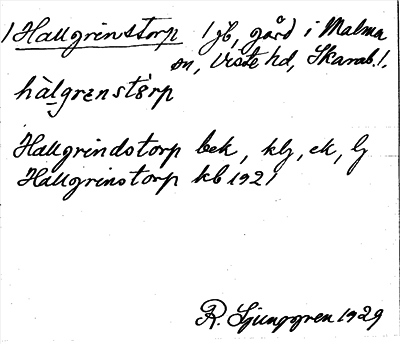 1 Hallgrinstorp 1 jb, gård i Malma
sn, Viste hd, Skarab. l.
hàlgrənstò̤rp
Hallgrindstorp bek, klj, ek, lj
Hallgrinstorp kb 1921
R. Ljunggren 1929